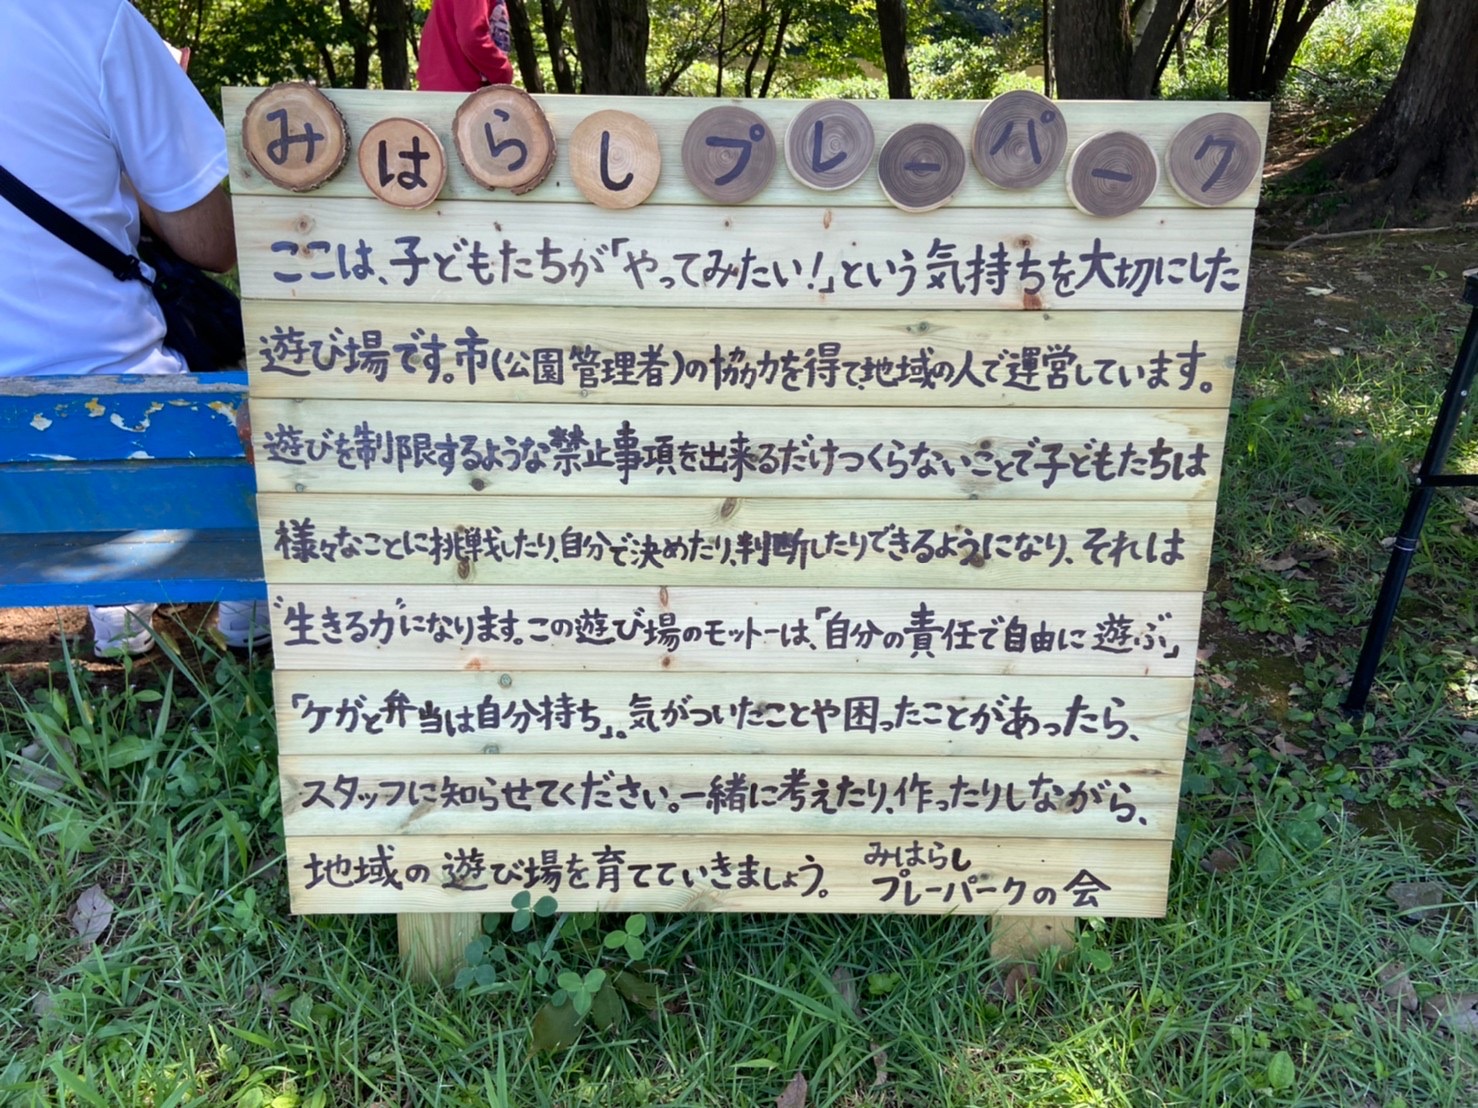 みはらしプレーパーク
ここは、子どもたちが「やってみたい!」という気持ちを大切にした
遊び場です。市(公園管理者)の協力を得て、地域の人で運営しています。
遊びを制限するような禁止事項を出来るだけつくらないことで子どもたちは
様々なことに挑戦したり、自分で決めたり、判断したりできるようになり、それは
"生きる力"になります。この遊び場のモットーは、「自分の責任で自由に遊ぶ」
「ケガと弁当は自分持ち」。気がついたことや困ったことがあったら、
スタッフに知らせてください。一緒に考えたり、作ったりしながら、
地域の遊び場を育てていきましょう。 みはらし
プレーパークの会